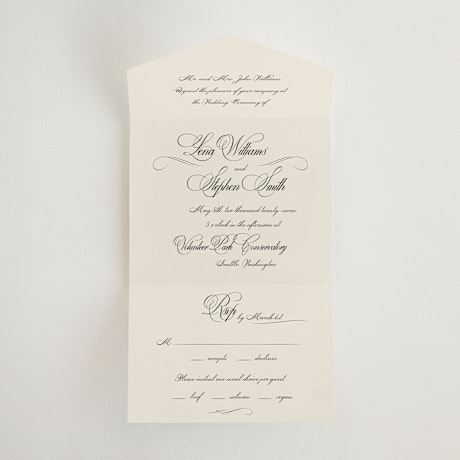 Mr. and Mrs. John Williams
Request the pleasure of your company at
the Wedding Ceremony of
Lena Williams
and
Stephen Smith
May 5th, two thousand twenty-seven
5 o'clock in the afternoon at
Volunteer Park Conservatory
Seattle, Washington
Rsvp by March 1st
M
accepts declines
Please initial one meal choice per guest
beef salmon vegan